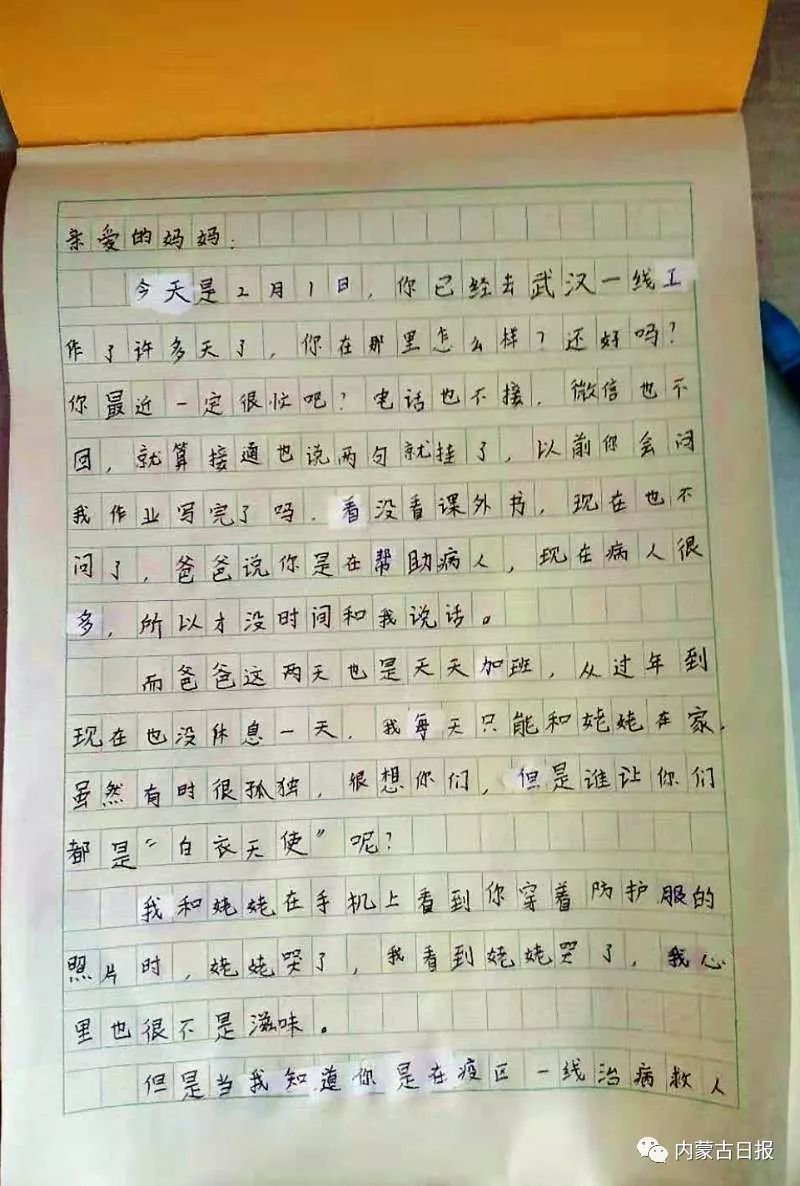 亲爱的妈妈：
今天是2月1日，你已经去武汉一线工
作了许多天了，你在那里怎么样？还好吗？
你最近一定很忙吧？电话也不接，微信也不
回，就算接通也说两句就挂了，以前你会问
我作业写完了吗，看没看课外书，现在也不
问了，爸爸说你是在帮助病人，现在病人很
多，所以才没时间和我说话。
而爸爸这两天也是天天加班，从过年到
现在也没休息一天，我每天只能和姥姥在家，
虽然有时很孤独，很想你们，但是谁让你们
都是“白衣天使”呢？
我和姥姥在手机上看到你穿着防护服的
照片时，姥姥哭了，我看到姥姥哭了，我心
里也很不是滋味。
但是当我知道你是在疫区一线治病救人
内蒙古日报